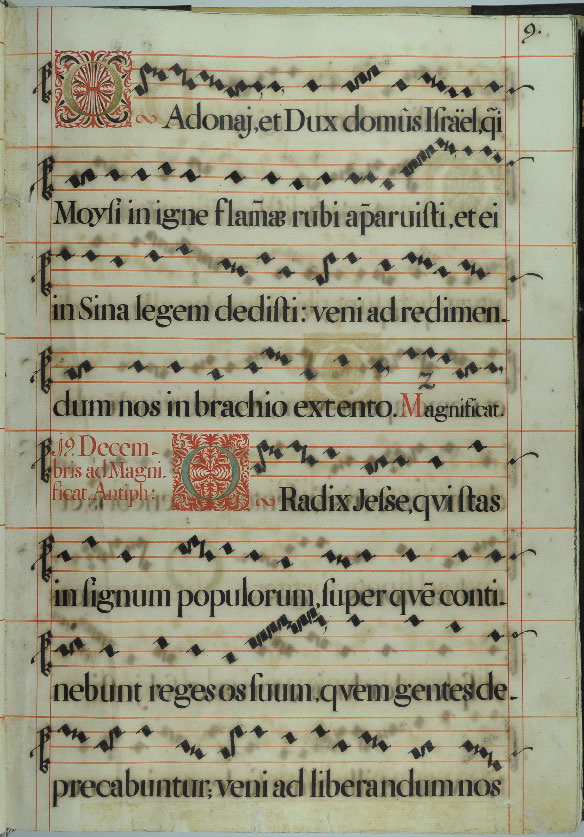 9.
O Adonaj, et Dux domûs Iſräel, qĩ
Moyſi in igne flam̃æ rubi ap̃aruiſti, et ei
in Sina legem dediſti: veni ad redimen-
dum nos in brachio extento. Magnificat.
2
19. Decem-
bris ad Magni-
ficat. Antiph:
O Radix Jeſse, qvi ſtas
in ſignum populorum, ſuper qvē conti-
nebunt reges os ſuum, qvem gentes de-
precabuntur; veni ad liberandum nos